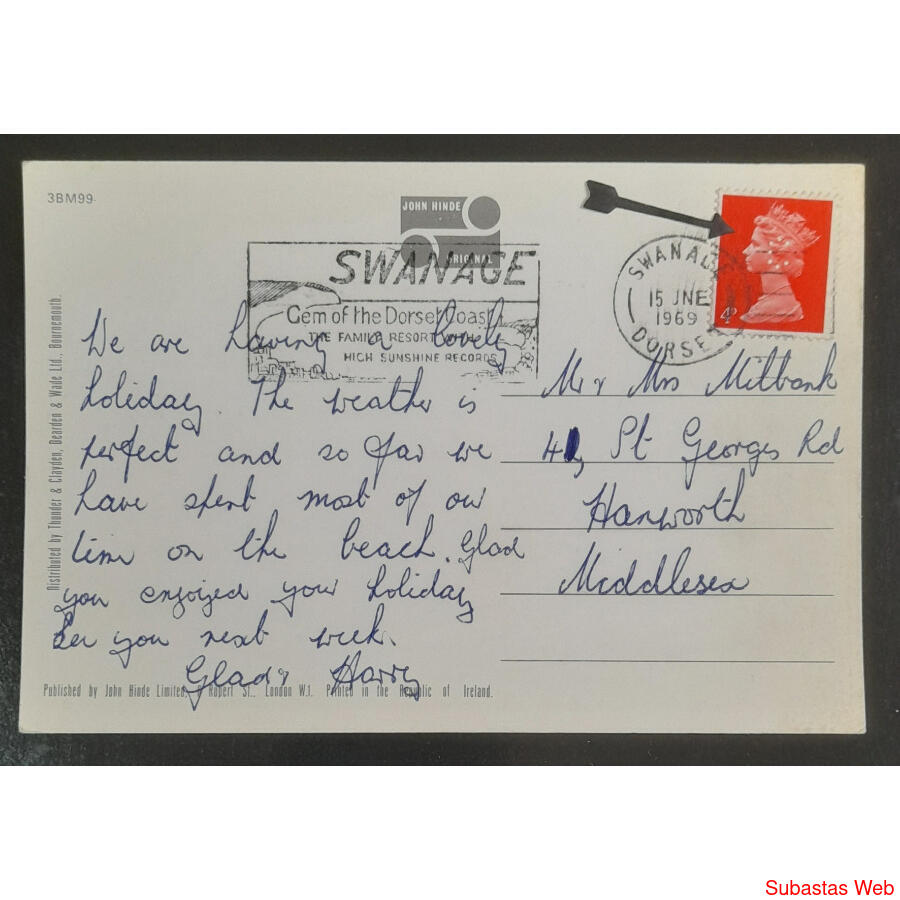 3BM99
JOHN HINDE
ORIGINAL
SWANAGE
Gem of the Dorset Coast
THE FAMILY RESORT WITH
HIGH SUNSHINE RECORDS
SWANAGE
15 JNE
1969
DORSET
4D
We are having a lovely
holiday. The weather is
perfect and so far we
have spent most of our
time on the beach. Glad
you enjoyed your holiday
See you next week.
Glad & Harry
Mr & Mrs Milbank
St Georges Rd
Hanworth
Middlesex
Distributed by Thunder & Clayden, Dearden & Wade Ltd., Bournemouth.
Published by John Hinde Limited, Rupert St., London W.1. Printed in the Republic of Ireland.
Subastas Web